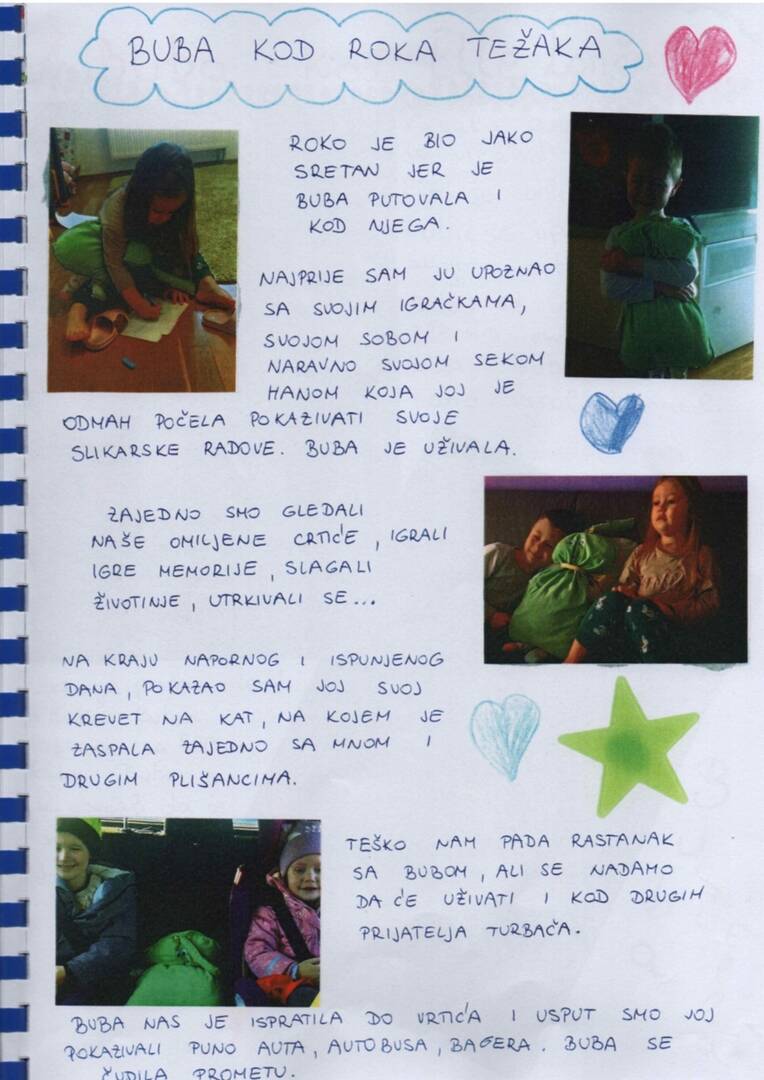 BUBA KOD ROKA TEŽAKA
ROKO JE BIO JAKO
SRETAN JER JE
BUBA PUTOVALA I
KOD NJEGA.
NAJPRIJE SAM JU UPOZNAO
SA SVOJIM IGRAČKAMA,
SVOJOM SOBOM I
NARAVNO SVOJOM SEKOM
HANOM KOJA JOJ JE
ODMAH POČELA POKAZIVATI SVOJE
SLIKARSKE RADOVE. BUBA JE UŽIVALA.
ZAJEDNO SMO GLEDALI
NAŠE OMILJENE CRTIĆE, IGRALI
IGRE MEMORIJE, SLAGALI
ŽIVOTINJE, UTRKIVALI SE...
NA KRAJU NAPORNOG I ISPUNJENOG
DANA, POKAZAO SAM JOJ SVOJ
KREVET NA KAT, NA KOJEM JE
ZASPALA ZAJEDNO SA MNOM I
DRUGIM PLIŠANCIMA.
TEŠKO NAM PADA RASTANAK
SA BUBOM, ALI SE NADAMO
DA ĆE UŽIVATI I KOD DRUGIH
PRIJATELJA TURBAČA.
BUBA NAS JE ISPRATILA DO VRTIĆA I USPUT SMO JOJ
POKAZIVALI PUNO AUTA, AUTOBUSA, BAGERA. BUBA SE
ČUDILA PROMETU.